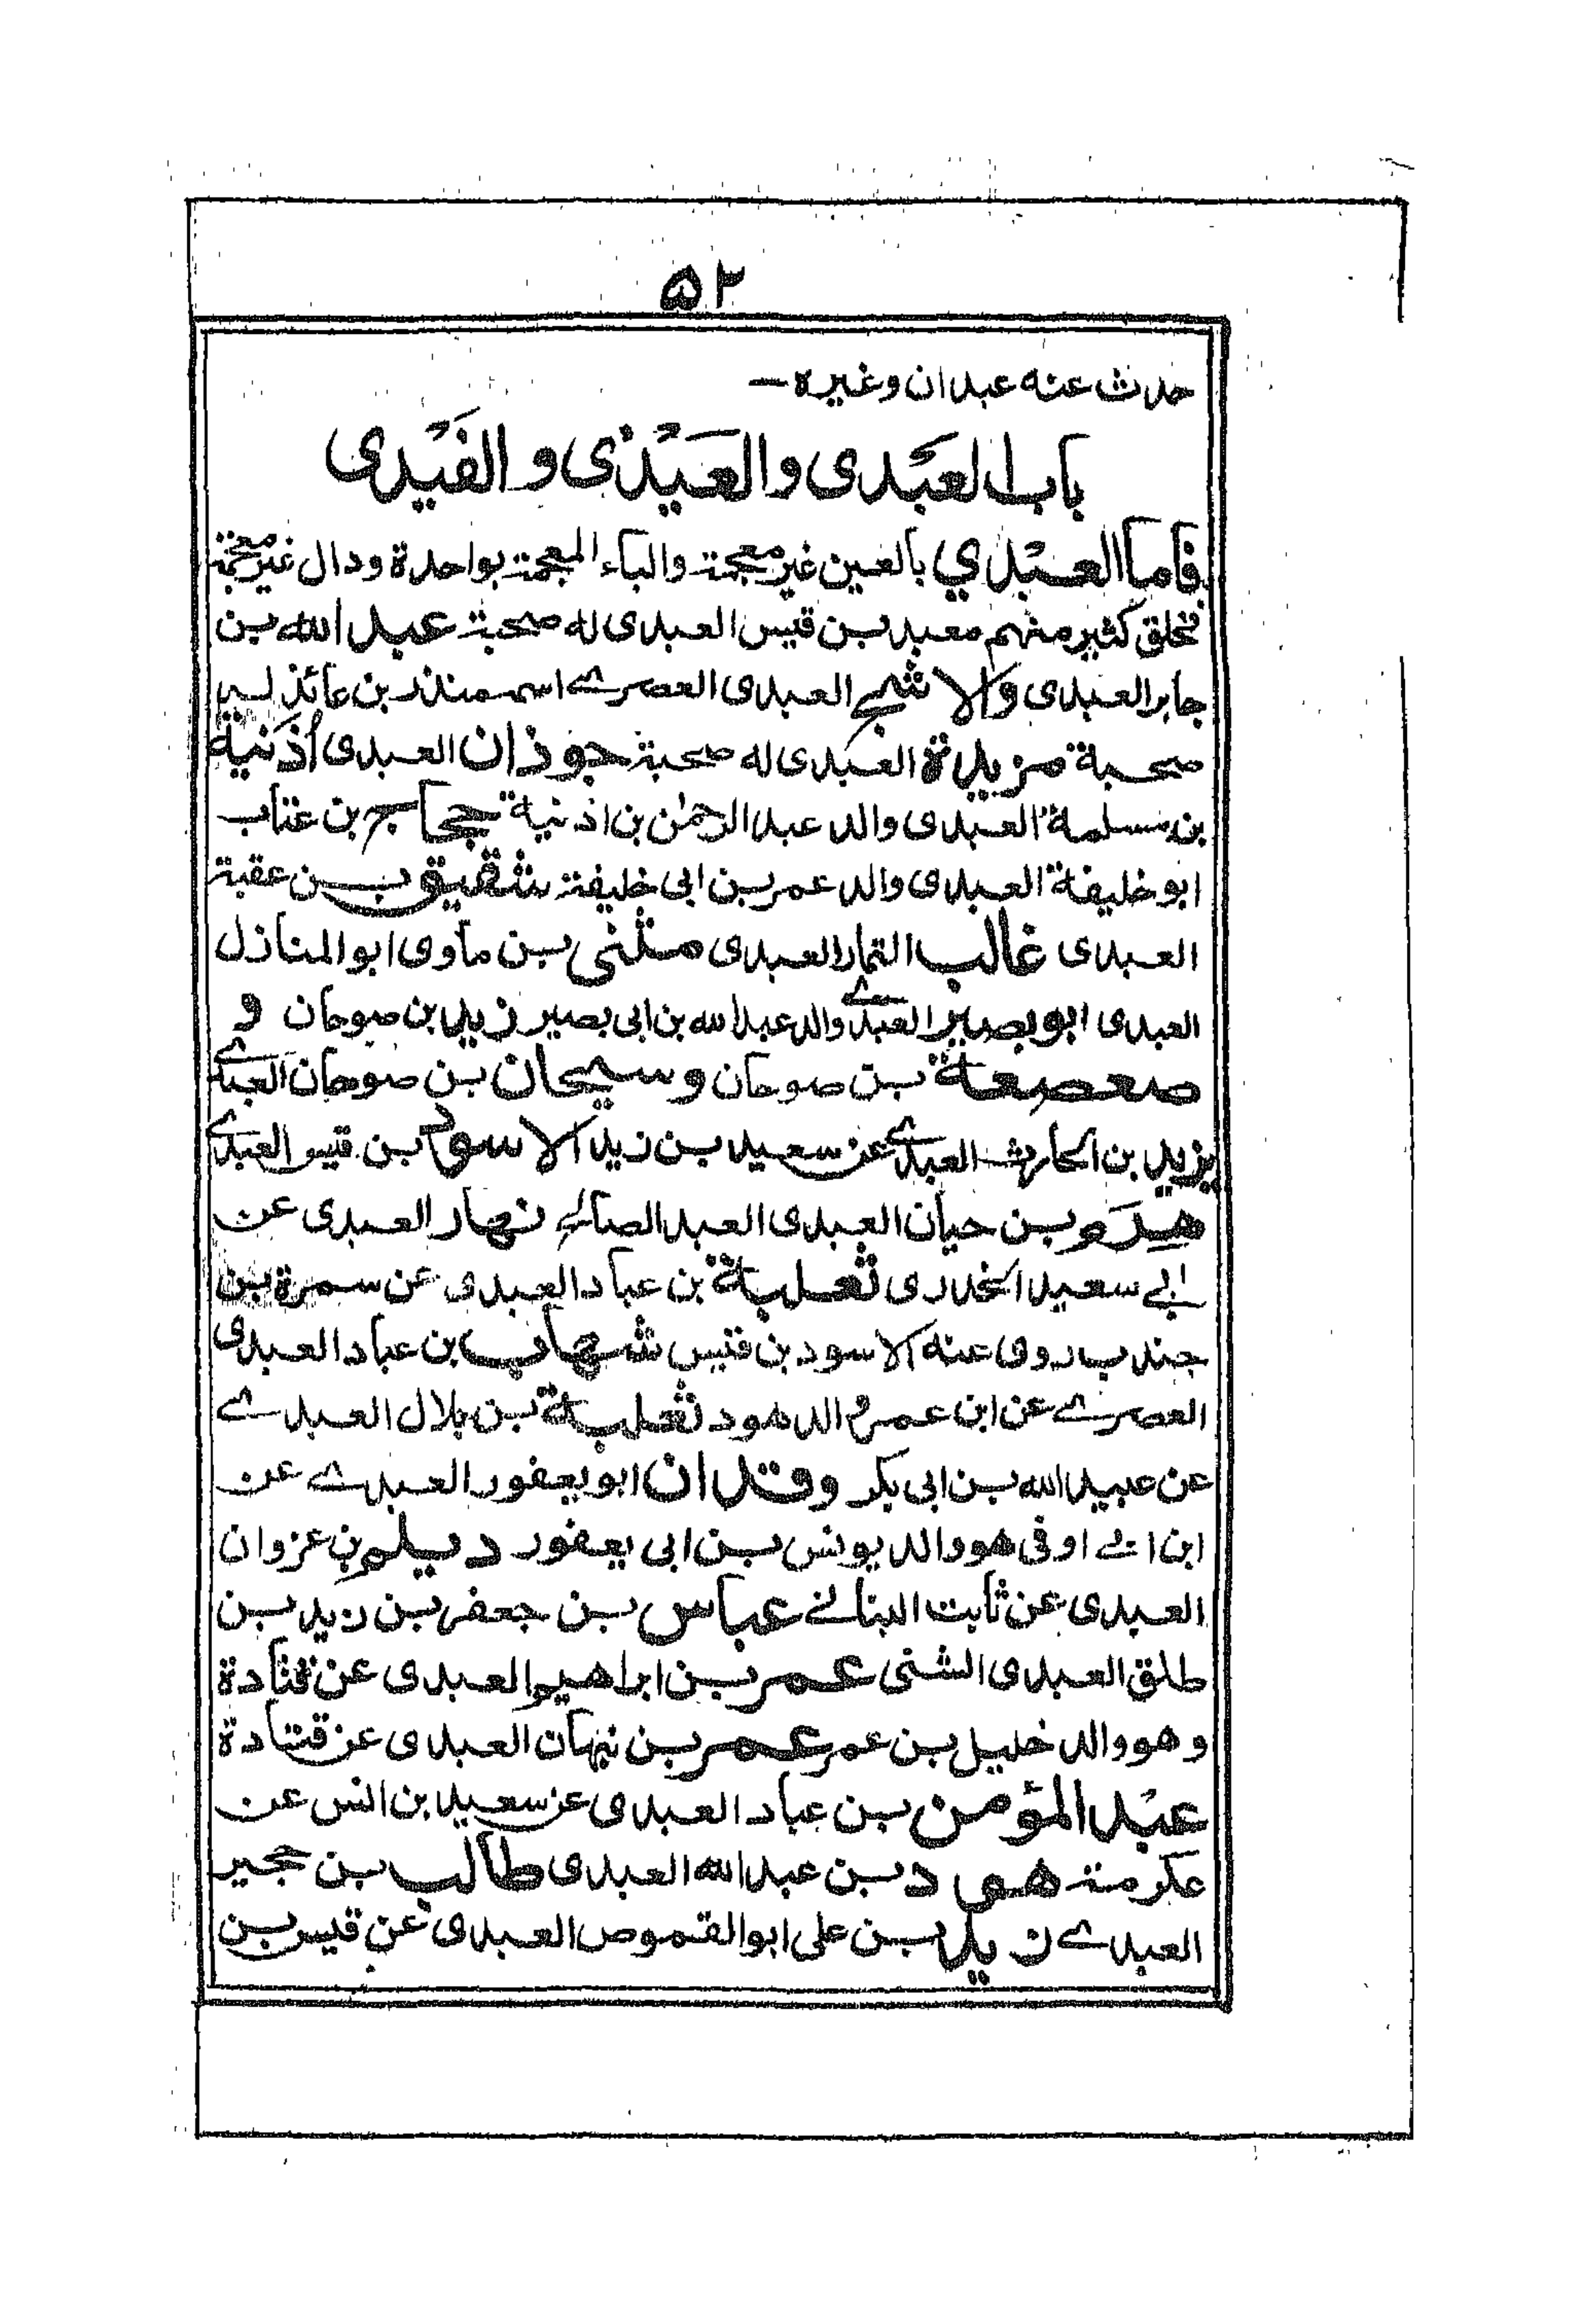 ۵۲
حدث عنه عبدان وغيره —
باب العَبْدى والعَيّذى والفَيْدى
فأما العبْدي بالعين غير معجمة والباء المعجمة بواحدة ودال غير معجمة
فخلق كثير منهم معبد بن قيس العبدى له صحبة عبد الله بن
جابر العبدى والاشج العبدى العصرے اسمه منذر بن عائذ له
صحبة مزيدة العبدى له صحبة جوذان العبدى أذنية
بن سلمة العبدى والد عبد الرحمٰن بن اذنية حجاج بن عتاب
ابو خليفة العبدى والد عمر بن ابى خليفة شقيق بن عقبة
العبدى غالب التمار العبدى مثنى بن ماوى ابو المنازل
العبدى ابو بصير العبدے والد عبد الله بن ابى بصير زيد بن صوحان و
صعصعة بن صوحان وسيحان بن صوحان العبدے
يزيد بن الحارث العبدے عن سعيد بن زيد الاسود بن قيس العبدے
هَرَم بن حيان العبدى العبد الصالح نهار العبدى عن
ابے سعيد الخدرى ثعلبة بن عباد العبدى عن سمرة بن
جندب روى عنه الاسود بن قيس شهاب بن عباد العبدى
العصرے عن ابن عمر والد هود ثعلبة بن بلال العبدے
عن عبيد الله بن ابى بكر وقدان ابو يعفور العبدے عن
ابن ابے اوفى هو والد يونس بن ابى يعفور ديلم بن غزوان
العبدى عن ثابت البنانے عباس بن جعفر بن زيد بن
طلق العبدى الشنى عمر بن ابراهيم العبدى عن قتادة
وهو والد خليل بن عمر عمر بن نبهان العبدى عن قتادة
عبْد المؤمن بن عباد العبدى عن سعيد بن انس عن
عكرمة هود بن عبد الله العبدى طالب بن حجير
العبدے زيد بن على ابو القموص العبدى عن قيس بن